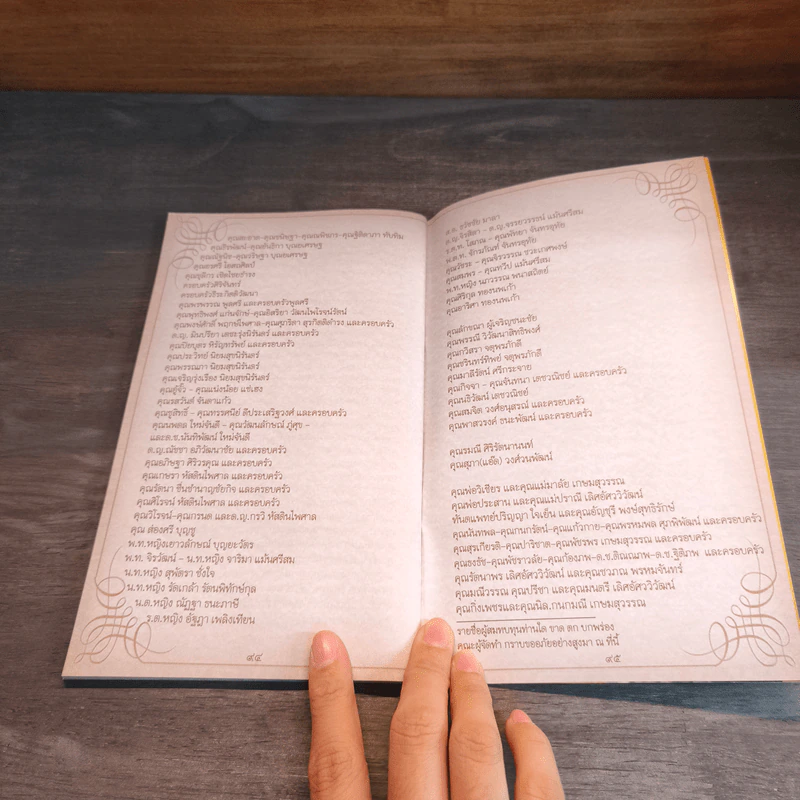 คุณสะอาด-คุณขนิษฐา-คุณนพิชาร-คุณฐิติตาภา ทับทิม
คุณธีรพัฒน์-คุณธันฐิกา บุณยเศรษฐ
คุณณัฐนิช-คุณวริษฐา บุณยเศรษฐ
คุณยศศรี โอสถศิลป์
คุณชุติกร เชิดไชยดำรง
ครอบครัวศิริจันทร์
ครอบครัวธีระกิตติวัฒนา
คุณพรพรรณ พูลศรี และครอบครัวพูลศรี
คุณพุทธิพงศ์ แก่นจักษ์-คุณอิสริยา วัฒนไพโรจน์รัตน์
คุณพงษ์ศักดิ์ พฤกษ์ไพศาล-คุณสุภาริตา สุรกิตติดำรง และครอบครัว
ด.ญ. มิ่นปรียา เตชะรุ่งนิรันดร์ และครอบครัว
คุณปิยบุตร หิรัญทรัพย์ และครอบครัว
คุณประวิทย์ นิยมสุขนิรันดร์
คุณพรรณภา นิยมสุขนิรันดร์
คุณเจริญรุ่งเรือง นิยมสุขนิรันดร์
คุณกู้จิ๋ว - คุณแน่งน้อย แซ่เฮง
คุณรสวันต์ จันตาแก้ว
คุณชูสิทธิ์ - คุณทรรศนีย์ ดีประเสริฐวงศ์ และครอบครัว
คุณนพดล ใหม่จันดี - คุณวัฒนลักษณ์ ภู่สุข -
และด.ช.นันทิพัฒน์ ใหม่จันดี
ด.ญ.ณัชชา อภิวัฒนาชัย และครอบครัว
คุณอภิษฐา ศิริวรคุณ และครอบครัว
คุณเกษรา หัสดินไพศาล และครอบครัว
คุณรัตนา ชื่นชำนาญชัยกิจ และครอบครัว
คุณศิโรจน์ หัสดินไพศาล และครอบครัว
คุณวิโรจน์-คุณกรนด และด.ญ.กรวิ หัสดินไพศาล
คุณ ส่องศรี บุญชู
พ.ท.หญิงเยาวลักษณ์ บุญยะวัตร
พ.ท. จิรวัฒน์ - น.ท.หญิง จาริมา แม้นศรีสม
น.ท.หญิง สุพัตรา ซั่งใจ
น.ท.หญิง รัดเกล้า รัตนพิทักษ์กุล
น.ต.หญิง ณัฏฐา ธนะภาษี
ร.ต.หญิง อัฐฎา เพลิงเทียน
๙๔
ส.ต. ธวัชชัย มาลา
ด.ญ.จิรสิตา - ด.ญ.จรรยวรรธน์ แม้นศรีสม
ร.ต.ท. โสภณ - คุณพัทยา จันทรสุทัย
พ.ต.ท. จักรภัณฑ์ จันทรสุทัย
คุณวัชระ - คุณจิรวรรณ ชวะเกศพงษ์
คุณสมพร - คุณทวีป แม้นศรีสม
พ.ท.หญิง นภาวรรณ พนาสถิตย์
คุณศิริกุล ทองนพเก้า
คุณอาริศา ทองนพเก้า
คุณลักขณา ผู้เจริญชนะชัย
คุณพรรณี วิวัฒนาสิทธิพงศ์
คุณกวิสรา จตุพรภักดี
คุณชรินทร์ทิพย์ จตุพรภักดี
คุณมาลีรัตน์ ศรีกระจาย
คุณกิจจา - คุณจันทนา เดชวณิชย์ และครอบครัว
คุณนธิวัฒน์ เดชวณิชย์
คุณสมจิต วงศ์อนุสรณ์ และครอบครัว
คุณพาสวรงค์ ชนะพัฒน์ และครอบครัว
คุณรมณี ศิริรัตนานนท์
คุณสุภา(แอ๊ด) วงศ์วนพัฒน์
คุณพ่อวิเชียร และคุณแม่มาลัย เกษมสุวรรณ
คุณพ่อประสาน และคุณแม่ปราณี เลิศอัศววิวัฒน์
ทันตแพทย์ปริญญา ใจเย็น และคุณอัญชุรี พงษ์สุทธิรักษ์
คุณนันทพล-คุณกนกรัตน์-คุณแก้วกาย-คุณพรหมพล ศุภพิพัฒน์ และครอบครัว
คุณสุรเกียรติ-คุณปาริชาต-คุณพัชรพร เกษมสุวรรณ และครอบครัว
คุณธงธัช-คุณพัชราวลัย-คุณก้องภพ-ด.ช.ติณณภพ-ด.ช.ฐิติภพ และครอบครัว
คุณรัตนาพร เลิศอัศววิวัฒน์ และคุณชวภณ พรหมจันทร์
คุณมณีวรรณ คุณปรีชา และคุณมนตรี เลิศอัศววิวัฒน์
คุณกิ่งเพชรและคุณนิล.กนกมณี เกษมสุวรรณ
รายชื่อผู้สมทบทุนท่านใด ขาด ตก บกพร่อง
คุณะผู้จัดทำ กราบขออภัยอย่างสูงมา ณ ที่นี้
๙๕